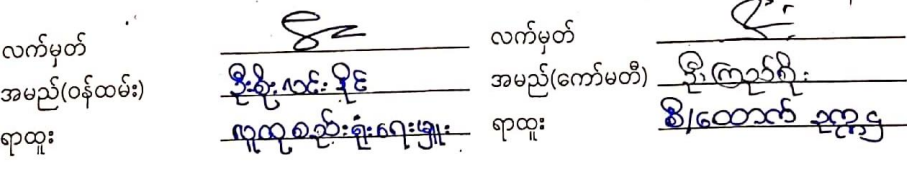 လက်မှတ်
အမည်(ဝန်ထမ်း) ဦးစိုးလင်းနိုင်
ရာထူး လူထုစည်းရုံးရေးမှူး
လက်မှတ်
အမည်(ကော်မတီ) ဦးကြည်စိုး
ရာထူး စီ/ထောက် ဥက္ကဋ္ဌ